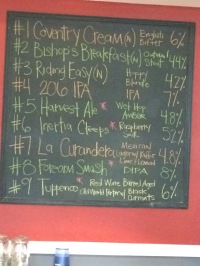 #1 Coventry Cream (N) English Bitter 6%
#2 Bishop's Breakfast (N) Oatmeal Stout 4.4%
#3 Riding Easy (N) Hoppy Blonde 4.2%
#4 206 IPA IPA 7%
#5 Harvest Ale * Wet Hop Amber 4.8%
#6 Inertia Creeps * Raspberry Sour 5.2%
#7 La Curandera Mexican 4.8%
#8 Foreom Smash * DIPA 8%
#9 Tuppence * Red Wine Barrel Aged Old World Porter w/ Black Currants 6%